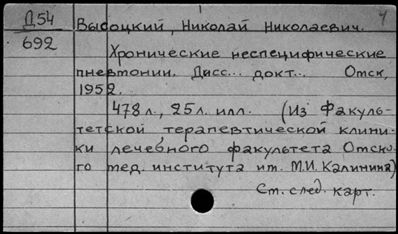 Д54
692
4
Высоцкий, Николай Николаевич.
Хронические неспецифические
пневmонии. Дисс... докт... Омск,
1952.
478 л., 25 л. илл. (Из факуль-
тетской терапевтической клини-
ки лечебного факультета Омско-
го мед. института им. М.И. Калинина)
См. след. карт.